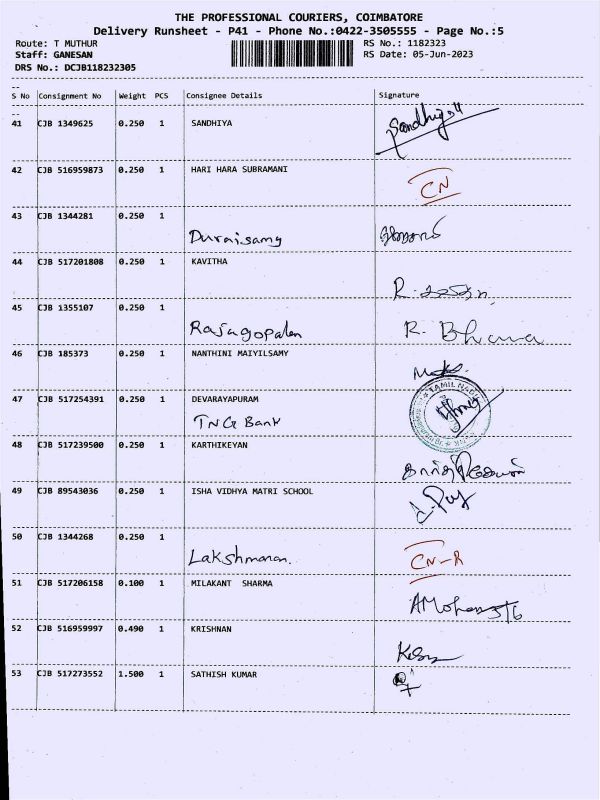 THE PROFESSIONAL COURIERS, COIMBATORE
Delivery Runsheet - P41 - Phone No.:0422-3505555 - Page No.:5
Route: T MUTHUR RS No.: 1182323
Staff: GANESAN RS Date: 05-Jun-2023
DRS No.: DCJB118232305
--
S No Consignment No Weight PCS Consignee Details Signature
--
41 CJB 1349625 0.250 1 SANDHIYA
42 CJB 516959873 0.250 1 HARI HARA SUBRAMANI
CN
43 CJB 1344281 0.250 1
Duraisamy
44 CJB 517201808 0.250 1 KAVITHA
45 CJB 1355107 0.250 1
Rajagopalan R. Bhama
46 CJB 185373 0.250 1 NANTHINI MAIYILSAMY
47 CJB 517254391 0.250 1 DEVARAYAPURAM
TNG Bank TAMIL NADU
48 CJB 517239500 0.250 1 KARTHIKEYAN
கார்த்திகேயன்
49 CJB 89543036 0.250 1 ISHA VIDHYA MATRI SCHOOL
50 CJB 1344268 0.250 1
Lakshmanan. CN-R
51 CJB 517206158 0.100 1 MILAKANT SHARMA
52 CJB 516959997 0.490 1 KRISHNAN
53 CJB 517273552 1.500 1 SATHISH KUMAR